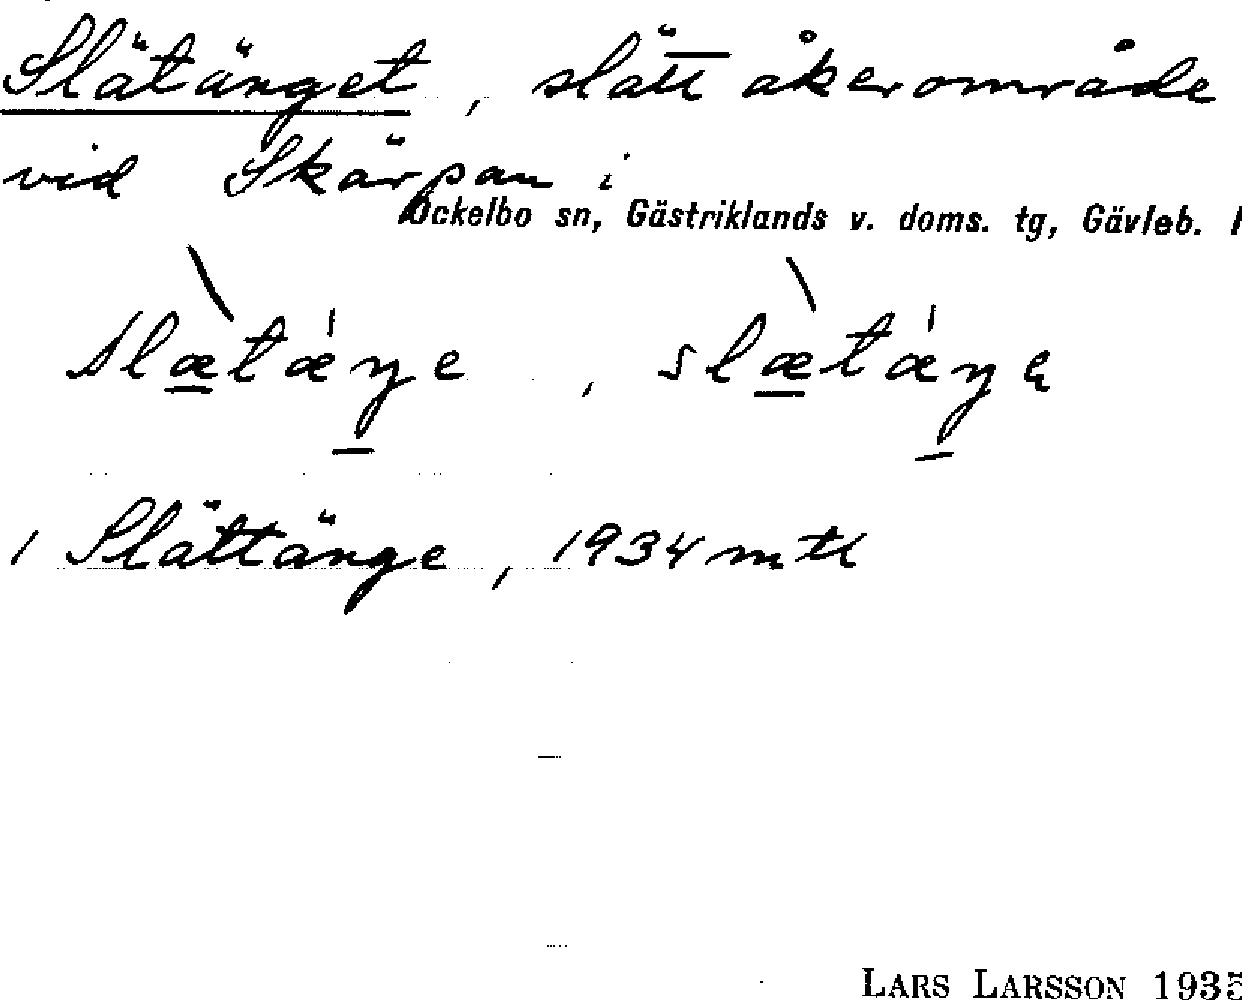 Slätänget, slätt åkerområde
vid Skärpan i
Ockelbo sn, Gästriklands v. doms. tg, Gävleb. l
slæ̀tǽŋe, slæ̀tǽŋę
1 Slättänge, 1934 mtl
LARS LARSSON 1935